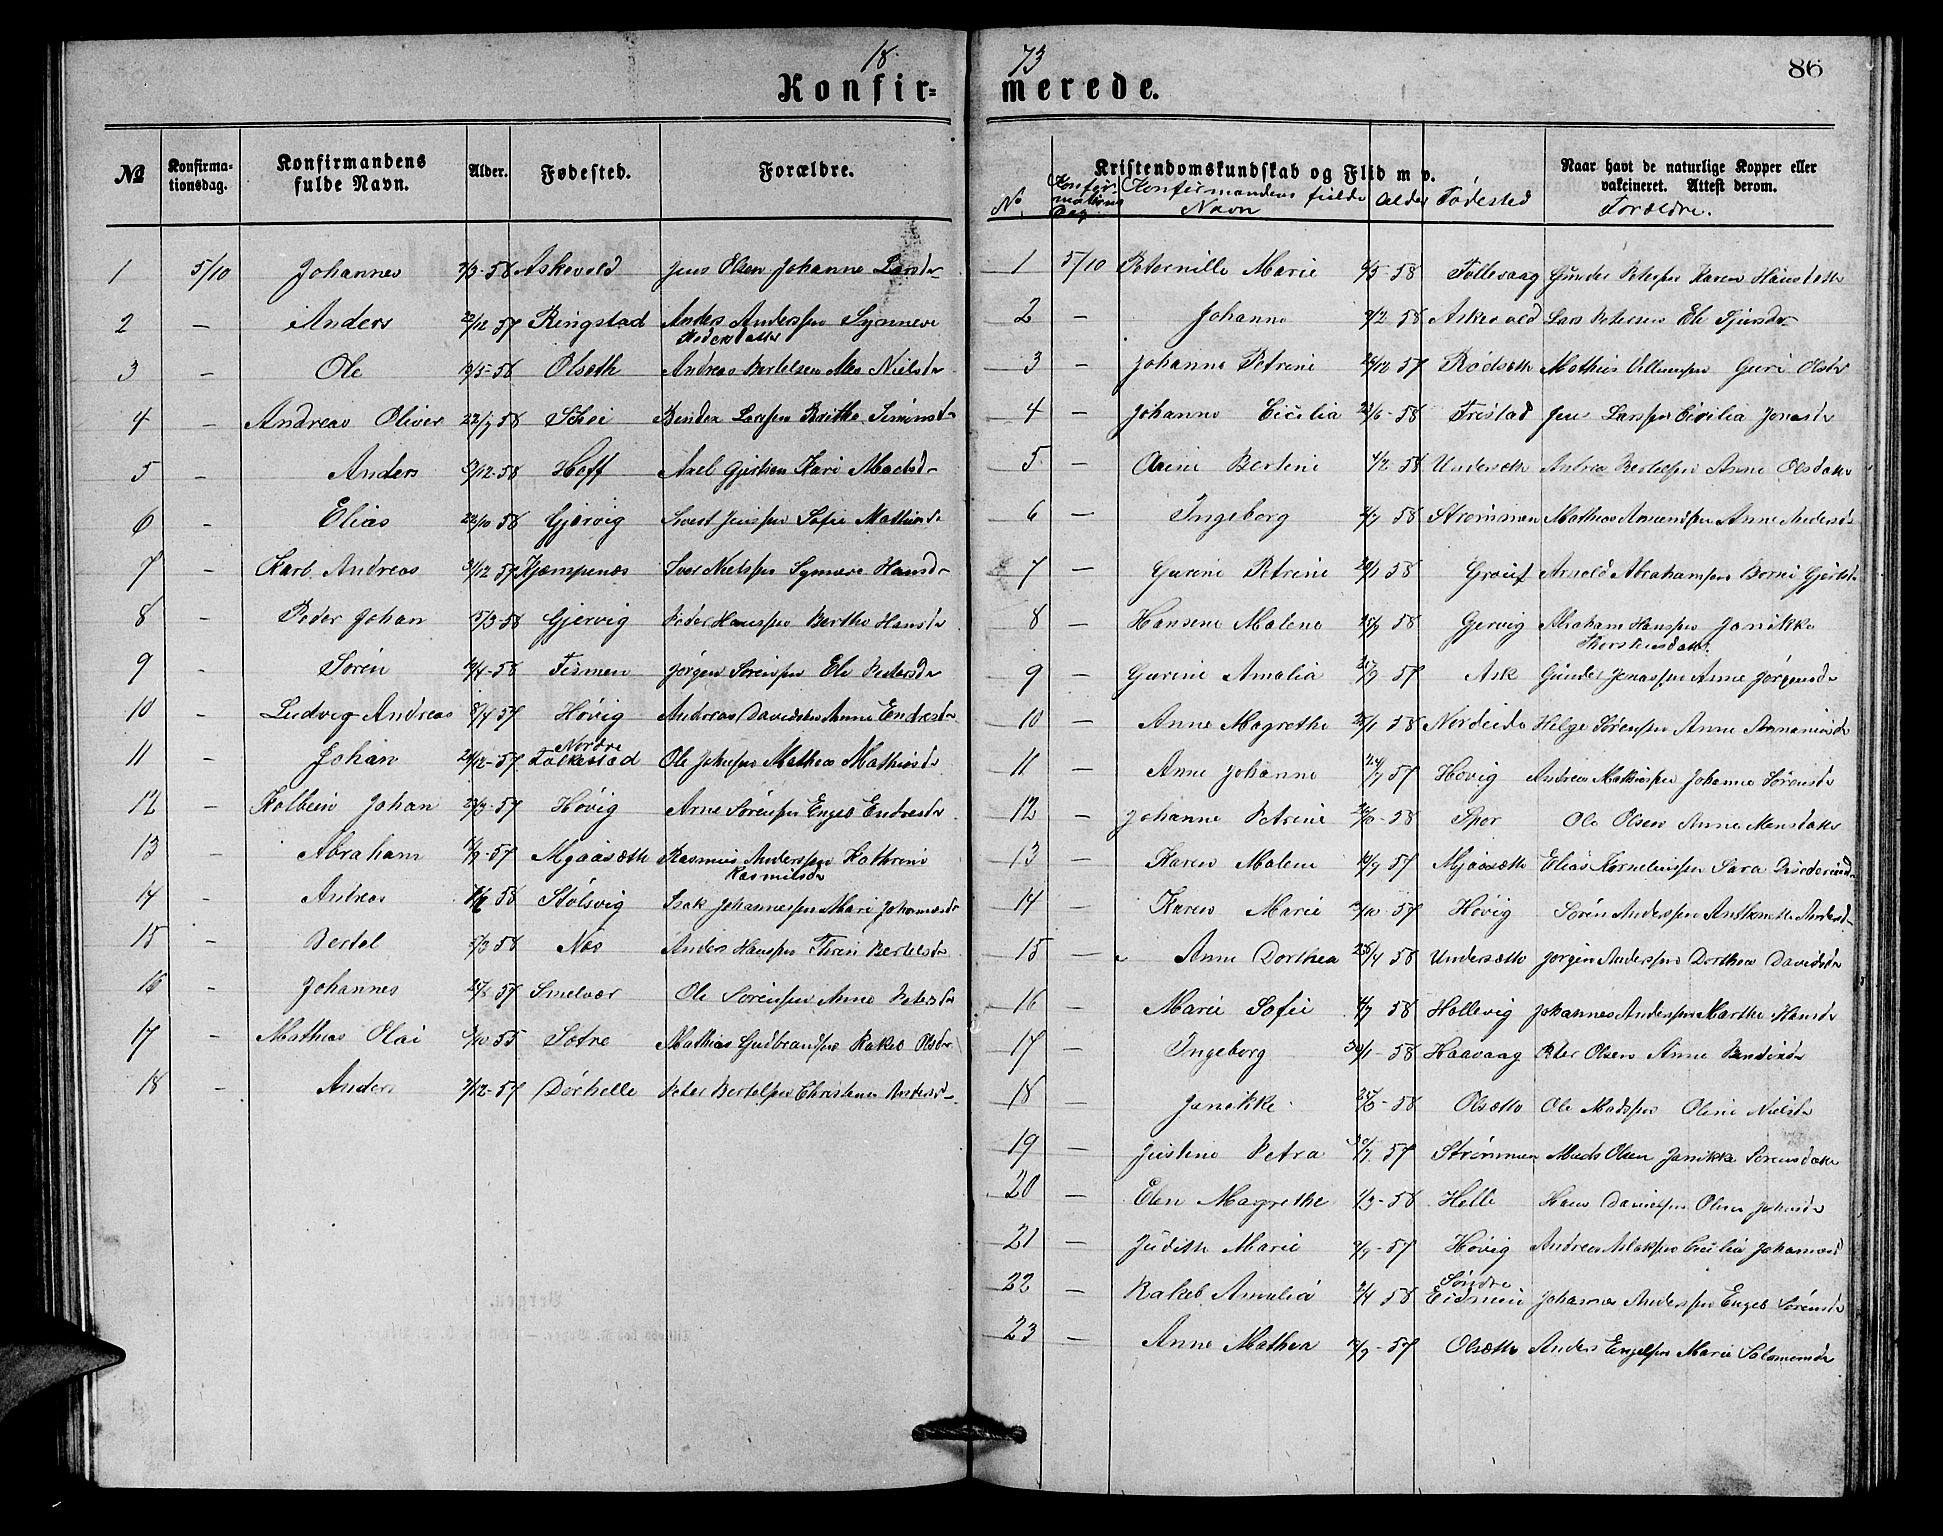 18 73
86
Konfir= merede.
№ Konfirma-tionsdag. Konfirmandens fulde Navn. Alder. Fødested. Forældre.
1 5/10 Johannes 58 Askevold Jens Olsen Johanne Larsdr
2 - Anders 22/12-57 Ringstad Anders Anderssen Synneve
Andersdatter
3 - Ole 56 Olseth Andreas Bertelsen Nielsdr
4 - Andreas Oliver 22/7 58 Schei Bendix Larssen Brithe Simonsdr
5 - Anders 9/12-58 Hoff Axel Gjertsen Kari Madsdr
6 - Elias 22/10 58 Gjervig Sivert Jenssen Sofie Mathiasdr
7 - Karl Andreas 3/12 57 Kjempenæs Iver Nielssen Synneve Hansdr
8 - Peder Johan 15/3-58 Gjervig Peder Hanssen Berthe Hansdr
9 - Søren 4-58 Tismen Jørgen Sørenssen Eli Pedersdr
10 - Ludvig Andreas 8/4 57 Høvig Andreas Davidsen Anne Endresdr
11 - Johan 24/12-57 Nordre
Folkestad Ole Johnssen Mathea Mathiasdr
12 - Kolbein Johan 23/3-57 Høvig Arne Sørenssen Engel Endresdr
13 - Abraham 9-57 Mjaasætte Rasmus Anderssen Kathrine
Rasmusdr
14 - Andreas 58 Stølsvig Isak Johannessen Mari Johannesdr
15 - Bertel 5/3 58 Nes Anders Hanssen Thrin Bertelsdr
16 - Johannes 24/8 57 Smelvær Ole Sørenssen Anne Petersdr
17 - Mathias Olai 10 55 Sætre Mathias Gudbrandssen Rakel Olsdr
18 - Anders 7/12-57 Dørhelle Peter Bertelssen Christine Andersdr
Kristendomskundskab og Flid m v. Naar havt de naturlige Kopper eller vakcineret. Attest derom.
No. Konfirmations Dag Konfirmandens fulde Navn Alder Fødested Forældre.
1 5/10 Peternille Marie 6/5-58 Follevaag Gunder Peterssen Karen Hansdatter
2 - Johanne 9/2-58 Askevold Lars Petersen Eli
3 - Johanne Petrine 26/12 57 Rødsæth Mathias Villumssen Guri Olsdr
4 - Johanne Cicilia 23/6-58 Tristad Jens Larssen Cicilia Jonasdr
5 - Oline Bertine 4/2 58 Undersæth Andreas Bertelssen Anne Olsdatter
6 - Ingeborg 58 Strømmen Mathias Amundssen Anne Andersdr
7 - Gurine Petrine 20/1 58 Grouf Arnold Abrahamssen Berni Gjertsdr
8 - Hansene Malene 25/7 58 Gjervig Abraham Hanssen Janikke
Thorstensdatter
9 - Gurine Amalia 25/9 57 Ask Gunder Jonassen Anne Jørgensdr
10 - Anne Magrethe 25/1 58 Nordeide Helge Sørenssen Anne
11 - Anne Johanne 24/7 57 Høvig Andreas Mathiassen Johanne Sørensdr
12 - Johanne Petrine 58 Spor Ole Olsen Anne Monsdatter
13 - Karen Malene 10/7 57 Mjaasætte Elias Korneliussen Sara
14 - Karen Marie 10-57 Høvig Søren Anderssen Andersdr
15 - Anne Dorthea 28/4 58 Undersætte Jørgen Anderssen Dorthea Davidsdr
16 - Marie Sofie 4/7 58 Hollevig Johannes Anderssen Marthe Hansdr
17 - Ingeborg 30/1-58 Haavaag Peter Olsen Anne
18 - Janikke 58 Olsætte Ole Madssen Oline Nielsdr
19 - Justine Petra 30/7 57 Strømmen Mads Olsen Janikke Sørensdatter
20 - Elen Magrethe 4/3-58 Helle Hans Danielssen Oline Johnsdr
21 - Judith Marie 9/9-57 Høvig Andreas Cicilia Johannesdr
22 - Rakel Amalia 2/4 58 Søndre
Eidsmein Johannes Anderssen Engel Sørensdr
23 - Anne Mathea 9-57 Olsætte Anders Engelssen Marie Salomonsdr